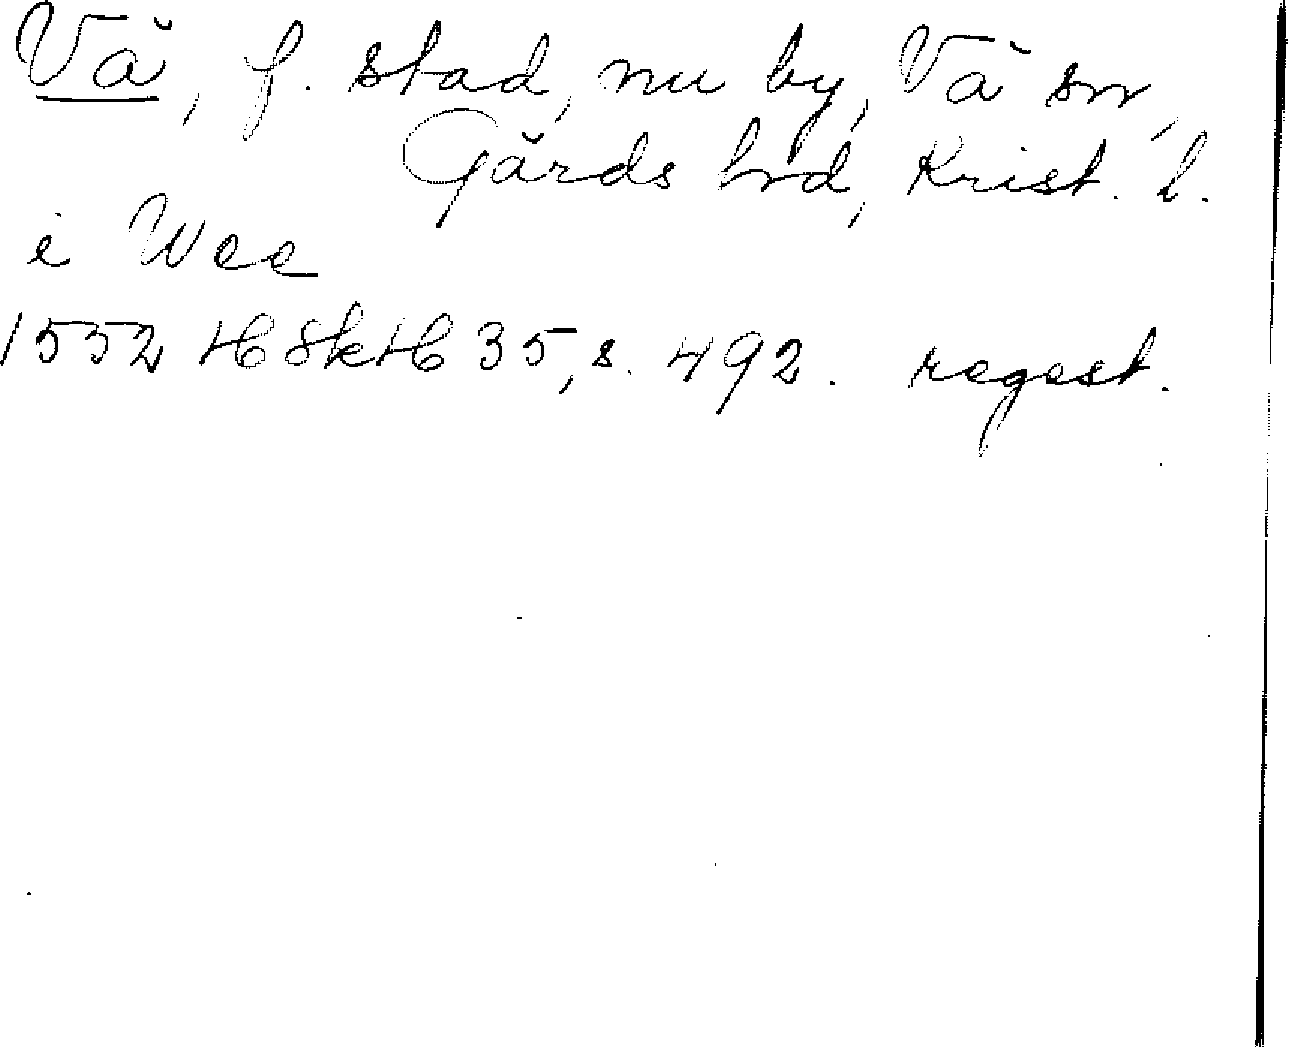 Vä, f. stad, nu by, Vä sn,
Gärds hrd, Krist. l.
i Wee
1552 HSkH 35, s. 492. regest.